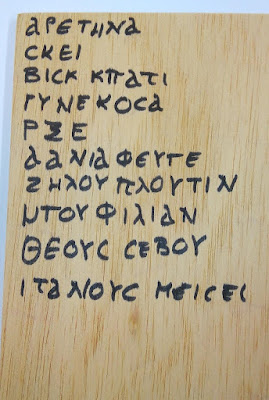 αρετηνα
ϲκει
βιϲκ κπατι
γυνεκοϲα
ρξε
δανια φευγε
ζηλου πλουτιν
μτου φιλιαν
θεουϲ ϲεβου
ιτανουϲ μειϲει